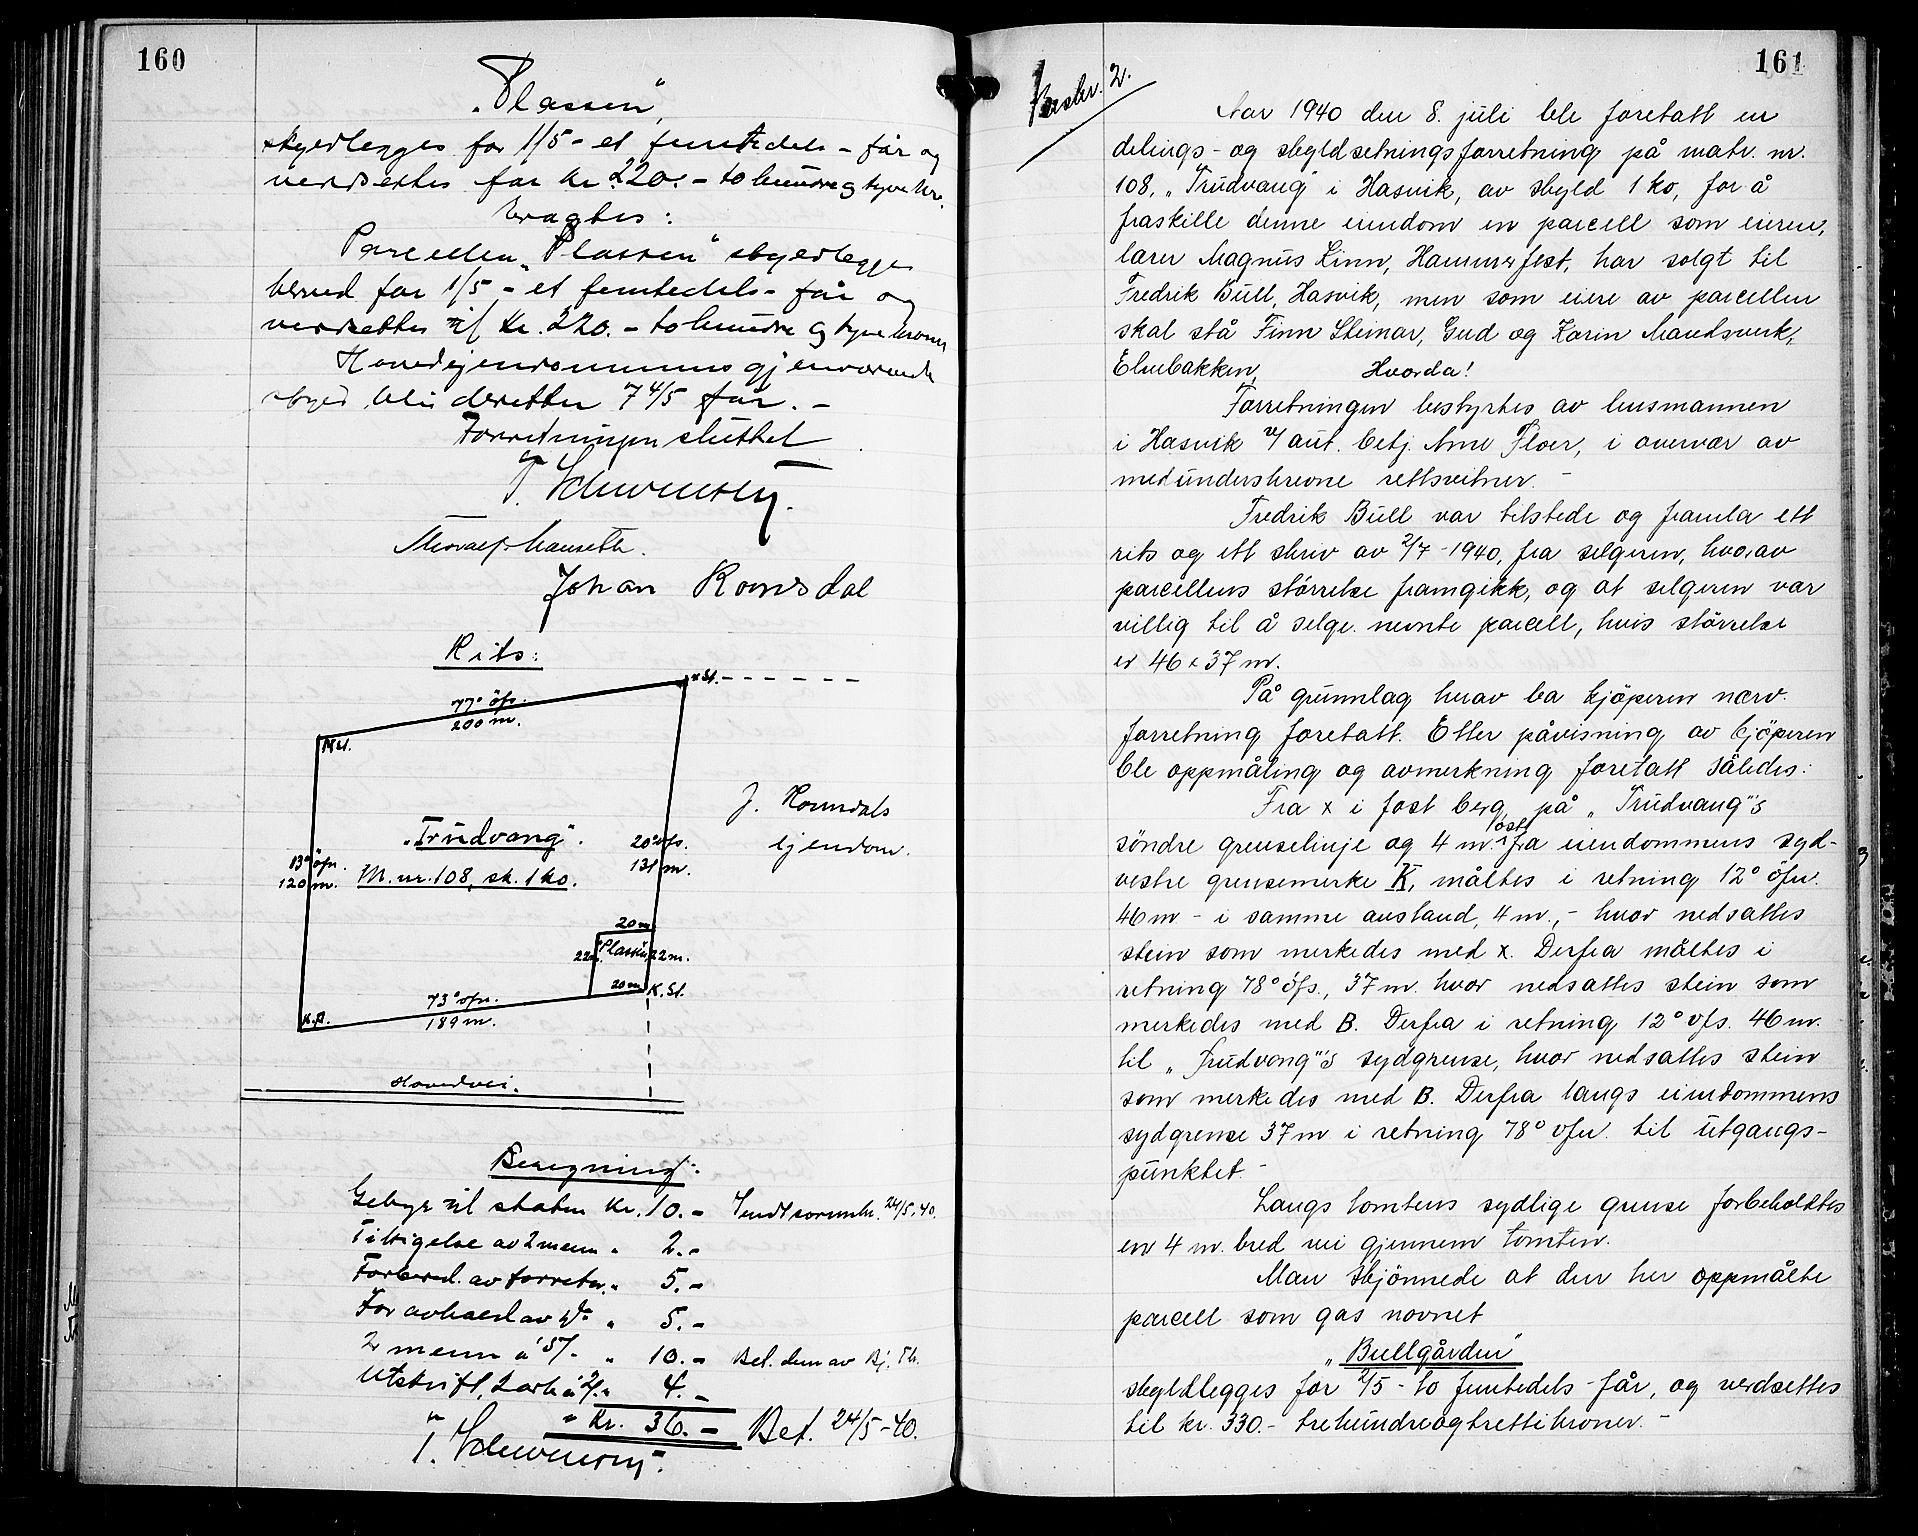 160
"Plassen",
skyldlegges for 1/5 - et femtedels - får og
verdsettes for kr 220.- to hundre og tyve kr.
bragtes:
Parcellen "Plassen" skyldlegges
herved for 1/5 - et femtedels - får og
verdsettes til kr. 220.- to hundre og tyve kroner
Hovedejendommens gjenværende
skyld blir deretter 7 4/5 får. -
Forretningen sluttet
T. Schwensen.
Thoralf Hanseth.
Johan Romsdal
Rits:
77° öfs.
200 m.
x St.
N St.
J. Romsdals
ejendom.
"Trudvang".
M. nr. 108, sk. 1 ko.
13° öfn.
120 m.
20° vfs.
131 m.
20 m
22 m.
"Plassen"
22 m.
20 m
K. St.
73° vfn.
189 m.
K. B.
Hovedvei.
Beregning:
Gebyr til staten kr. 10.- Sendt sorenskr. 24/5-40.
Tilsigelse av 2 menn " 2.-
Forbered. av forretn. " 5.-
For avhold av do " 5.-
2 menn á 5/- " 10.- Bet. dem av Bj. Th.
Utskrift, 2 ark á 2/- " 4.-
" Kr. 36.- Bet. 24/5-40.
T. Schwensen.
161
Beskr. 2.
Aar 1940 den 8. juli ble foretatt en
delings- og skyldsetningsforretning på matr. nr.
108, "Trudvang" i Hasvik, av skyld 1 ko, for å
fraskille denne eiendom en parcell som eieren,
lærer Magnus Linn, Hammerfest, har solgt til
Fredrik Bull, Hasvik, men som eiere av parcellen
skal stå Finn Steinar, Gud og Karin Mandsverk,
Elvebakken, Hvorda!
Forretningen bestyrtes av lensmannen
i Hasvik v/ aut. betj. Arne Floer, i overvær av
medunderskrevne rettsvitner. -
Fredrik Bull var tilstede og framla ett
rits og ett skriv av 2/7-1940, fra selgeren, hvorav
parcellens størrelse framgikk, og at selgeren var
villig til å selge nevnte parcell, hvis størrelse
er 46 x 37 m.
På grunnlag herav ba kjöperen nærv.
forretning foretatt. Etter påvisning av kjöperen
ble oppmåling og avmerkning foretatt således:
Fra x i fast berg på "Trudvang"'s
söndre grenselinje og 4 m. öst fra eiendommens syd-
vestre grensemerke K, måltes i retning 12° öfn.
46 m - i samme avstand, 4 m., - hvor nedsattes
stein som merkedes med x. Derfra måltes i
retning 78° öfs., 37 m. hvor nedsattes stein som
merkedes med B. Derfra i retning 12° vfs. 46 m.
til "Trudvang"'s sydgrense, hvor nedsattes stein
som merkedes med B. Derfra langs eiendommens
sydgrense 37 m i retning 78° vfn. til utgangs-
punktet. -
Langs tomtens sydlige grense forbeholdtes
en 4 m. bred vei gjennem tomten.
Man skjönnede at den her oppmålte
parcell som gas navnet
"Bullgården"
skyldlegges for 2/5 - to femtedels - får, og verdsettes
til kr. 330.- trehundreogtrettikroner. -